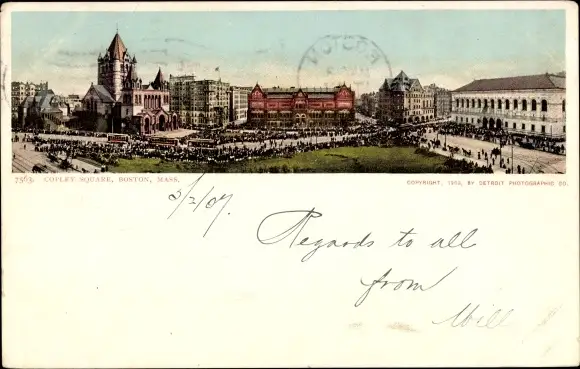 7563. COPLEY SQUARE, BOSTON, MASS.
COPYRIGHT, 1903, BY DETROIT PHOTOGRAPHIC CO.
5/2/07.
Regards to all
from
Will